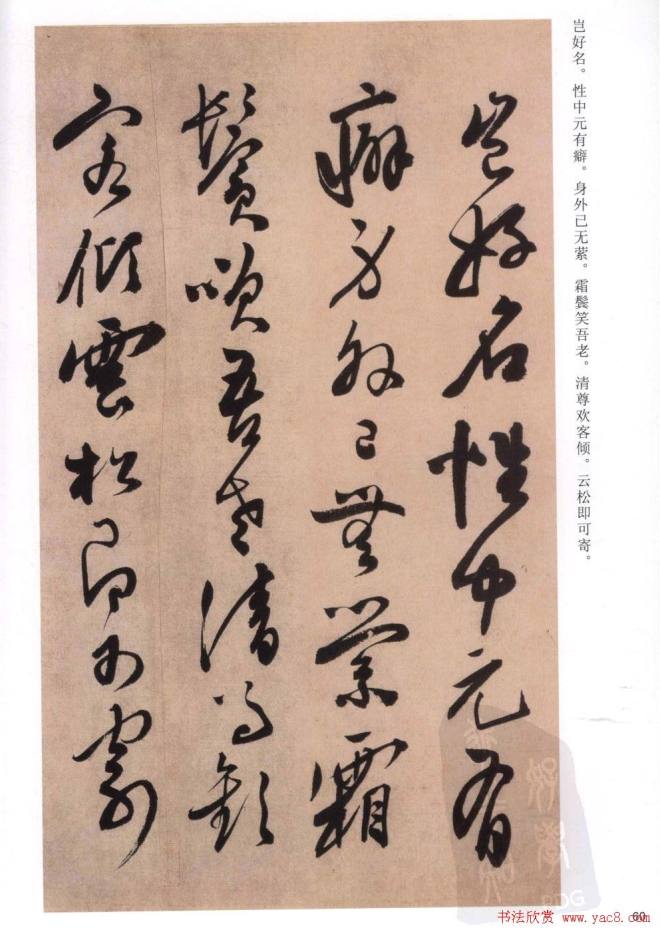 岂好名。性中元有癖。身外已无萦。霜鬓笑吾老。清尊欢客倾。云松即可寄。
岂好名性中元有
癖身外已无萦霜
鬢笑吾老清尊歡
客倾雲松即可寄
60
书法欣赏 www.yac8.com